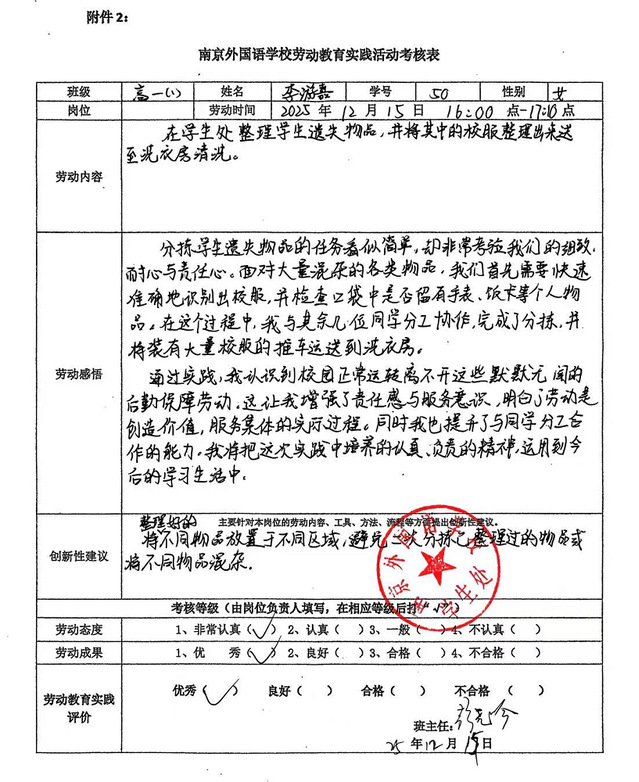 附件2：
南京外国语学校劳动教育实践活动考核表
班级 高一(1) 姓名 李 嘉 学号 50 性别 女
岗位 劳动时间 2025年12月15日 16:00点-17:10点
劳动内容
在学生处整理学生遗失物品，并将其中的校服整理出来送
至洗衣房清洗。
劳动感悟
分拣学生遗失物品的任务看似简单，却非常考验我们的细致、
耐心与责任心。面对大量混杂的各类物品，我们首先需要快速
准确地识别出校服，并检查口袋中是否留有手表、饭卡等个人物
品。在这个过程中，我与其余几位同学分工协作，完成了分拣，并
将装有大量校服的推车运送到洗衣房。
通过实践，我认识到校园正常运转离不开这些默默无闻的
后勤保障劳动。这让我增强了责任感与服务意识，明白了劳动是
创造价值，服务集体的实际过程。同时我也提升了与同学分工合
作的能力。我将把这次实践中培养的认真、负责的精神，运用到今
后的学习生活中。
创新性建议
主要针对本岗位的劳动内容、工具、方法、流程等方面提出创新性建议。
整理好的
将不同物品放置于不同区域，避免二次分拣已整理过的物品或
将不同物品混杂。
南京外国语学校
学生处
考核等级（由岗位负责人填写，在相应等级后打“√”）
劳动态度 1、非常认真（√）2、认真（ ）3、一般（ ）4、不认真（ ）
劳动成果 1、优 秀（√）2、良好（ ）3、合格（ ）4、不合格（ ）
劳动教育实践
评价
优秀（√） 良好（ ） 合格（ ） 不合格（ ）
班主任：
25年12月15日